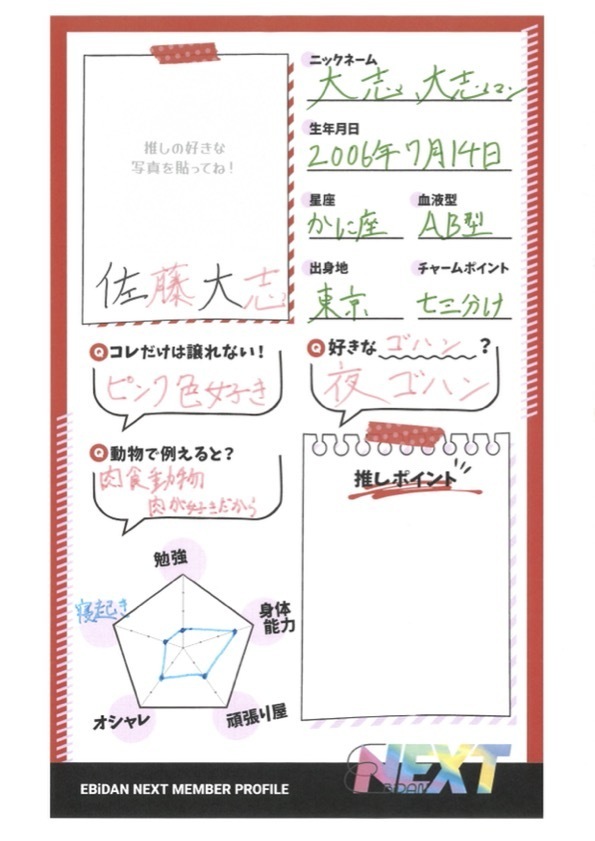 ニックネーム
大志、大志マン
生年月日
2006年7月14日
星座
かに座
血液型
AB型
出身地
東京
チャームポイント
七三分け
推しの好きな
写真を貼ってね!
佐藤大志
Q コレだけは譲れない!
ピンク色好き
Q 好きな ゴハン ?
夜ゴハン
Q 動物で例えると?
肉食動物
肉が好きだから
推しポイント
勉強
寝起き
身体
能力
オシャレ
頑張り屋
EBiDAN NEXT MEMBER PROFILE
EBiDAN
NEXT